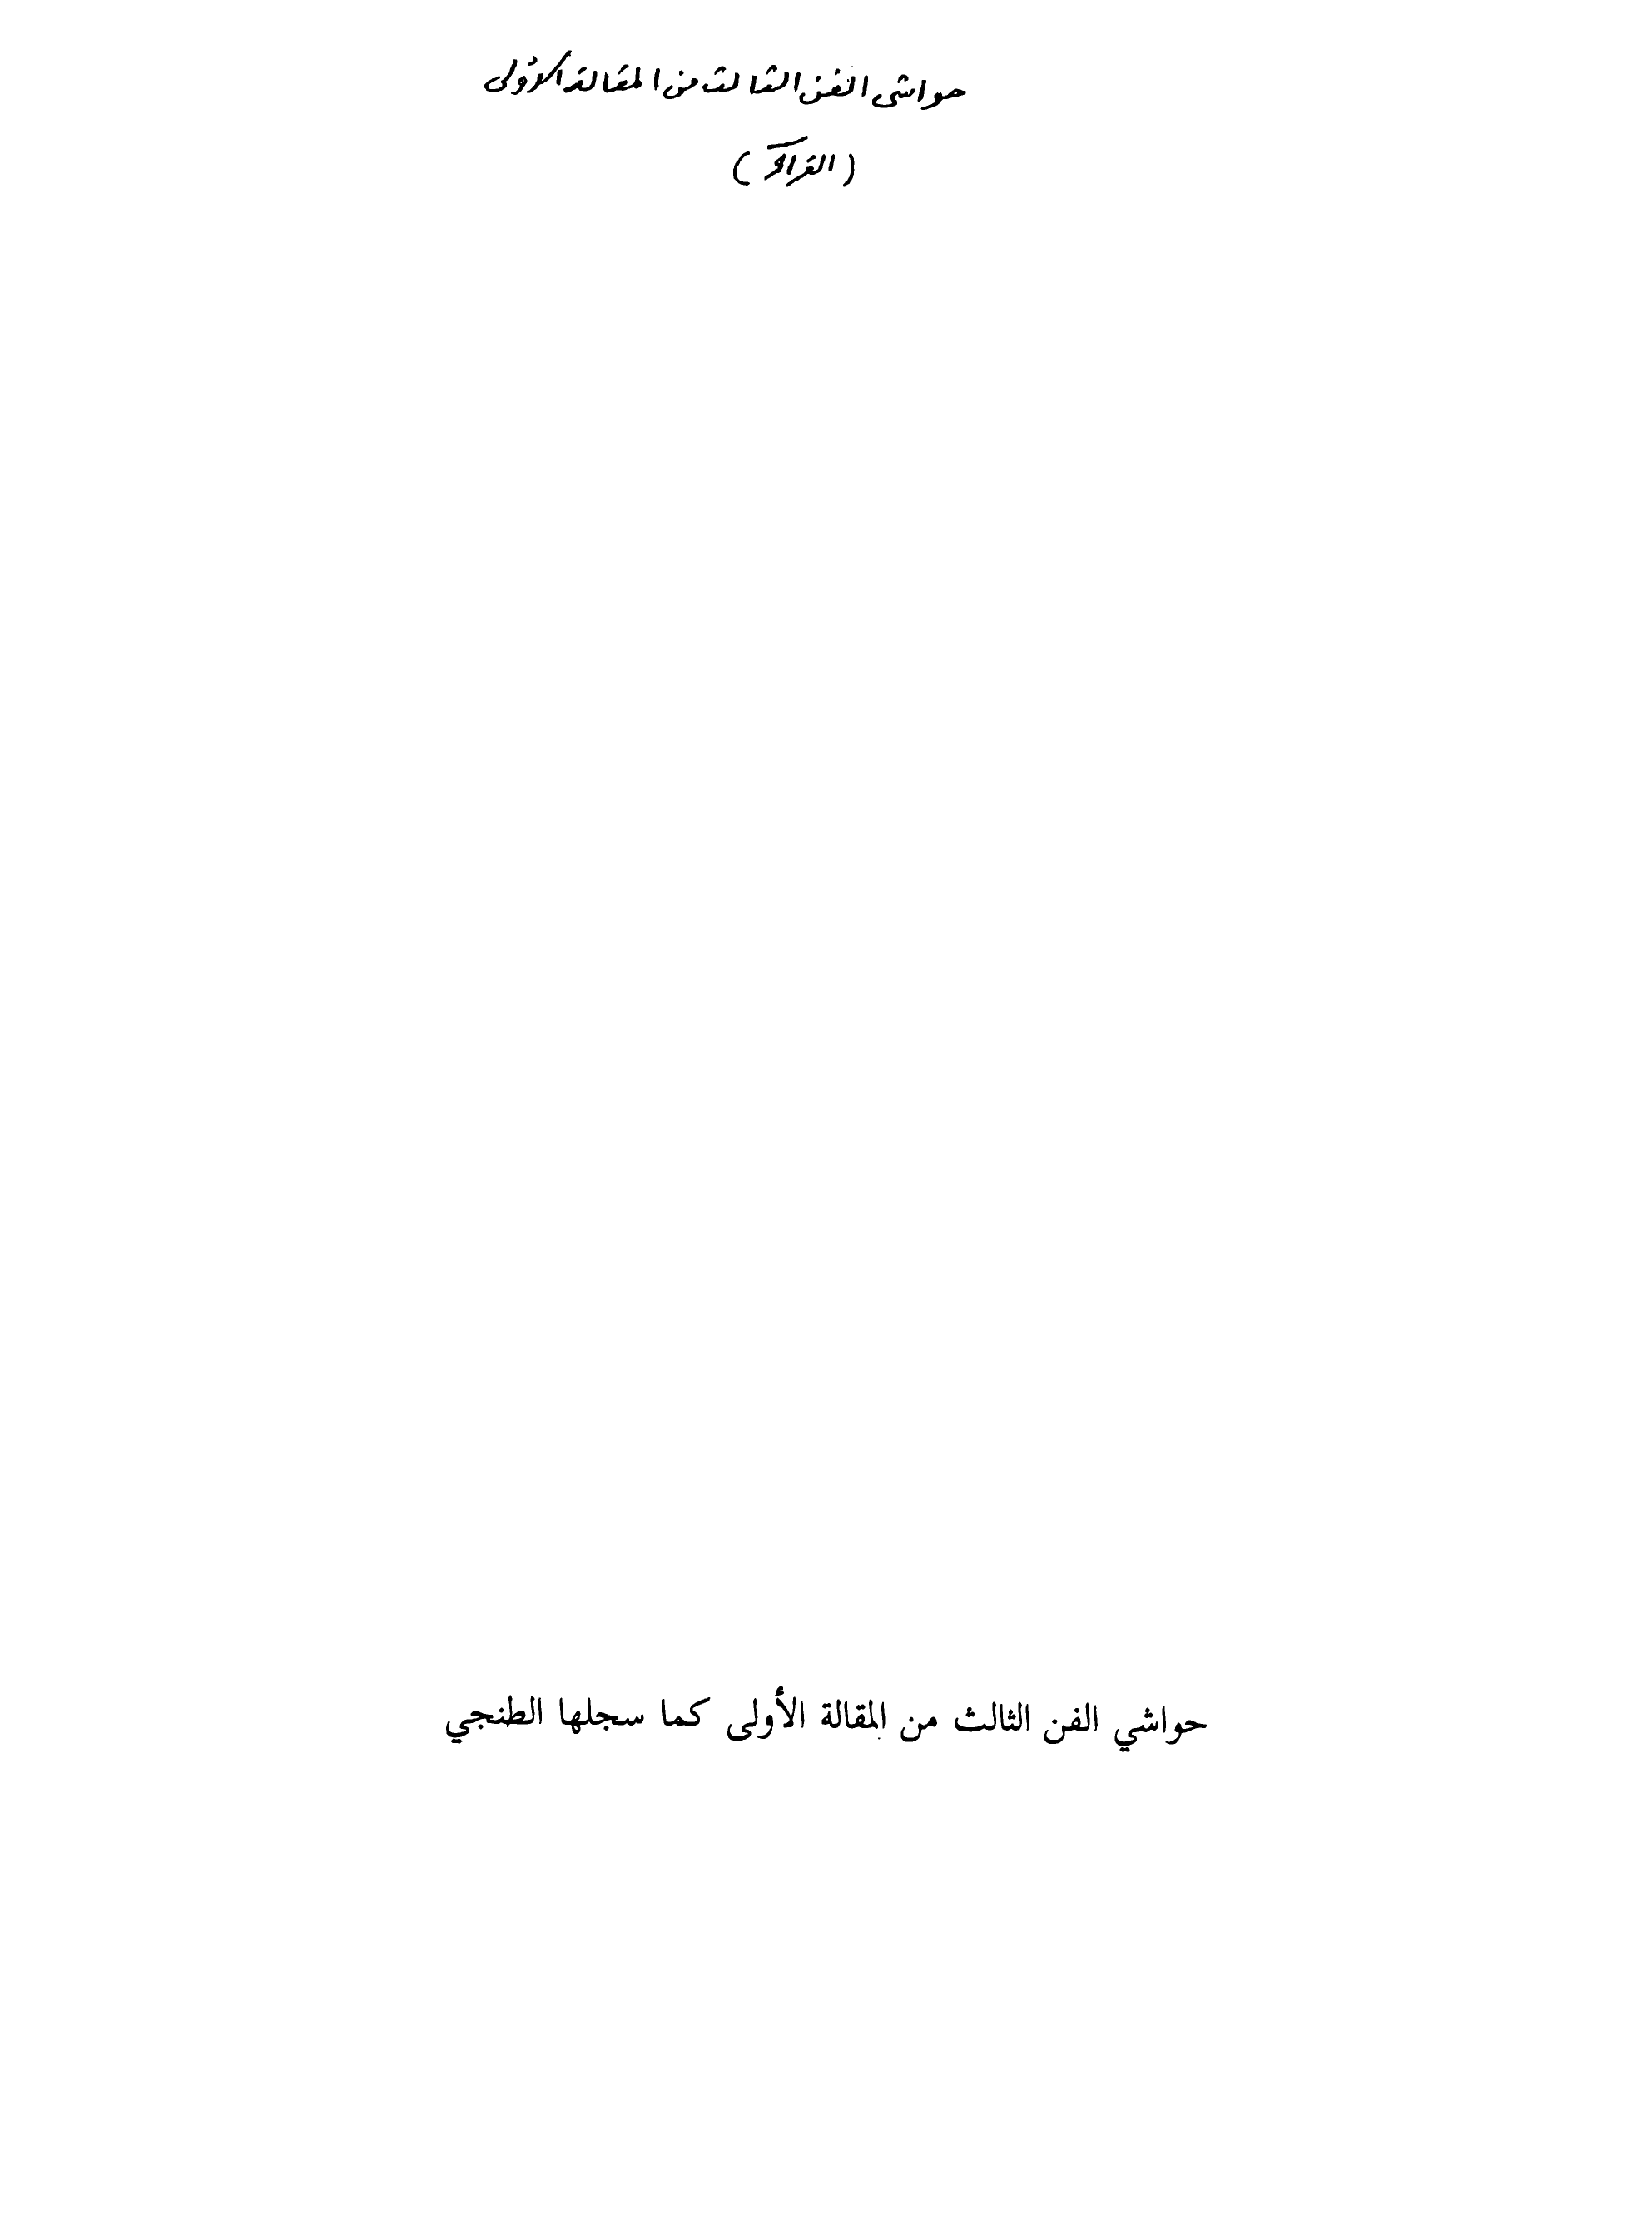 حواشى الفن الثالث من المقالة الأولى
(القراء)
حواشي الفن الثالث من المقالة الأولى كما سجلها الطنجي